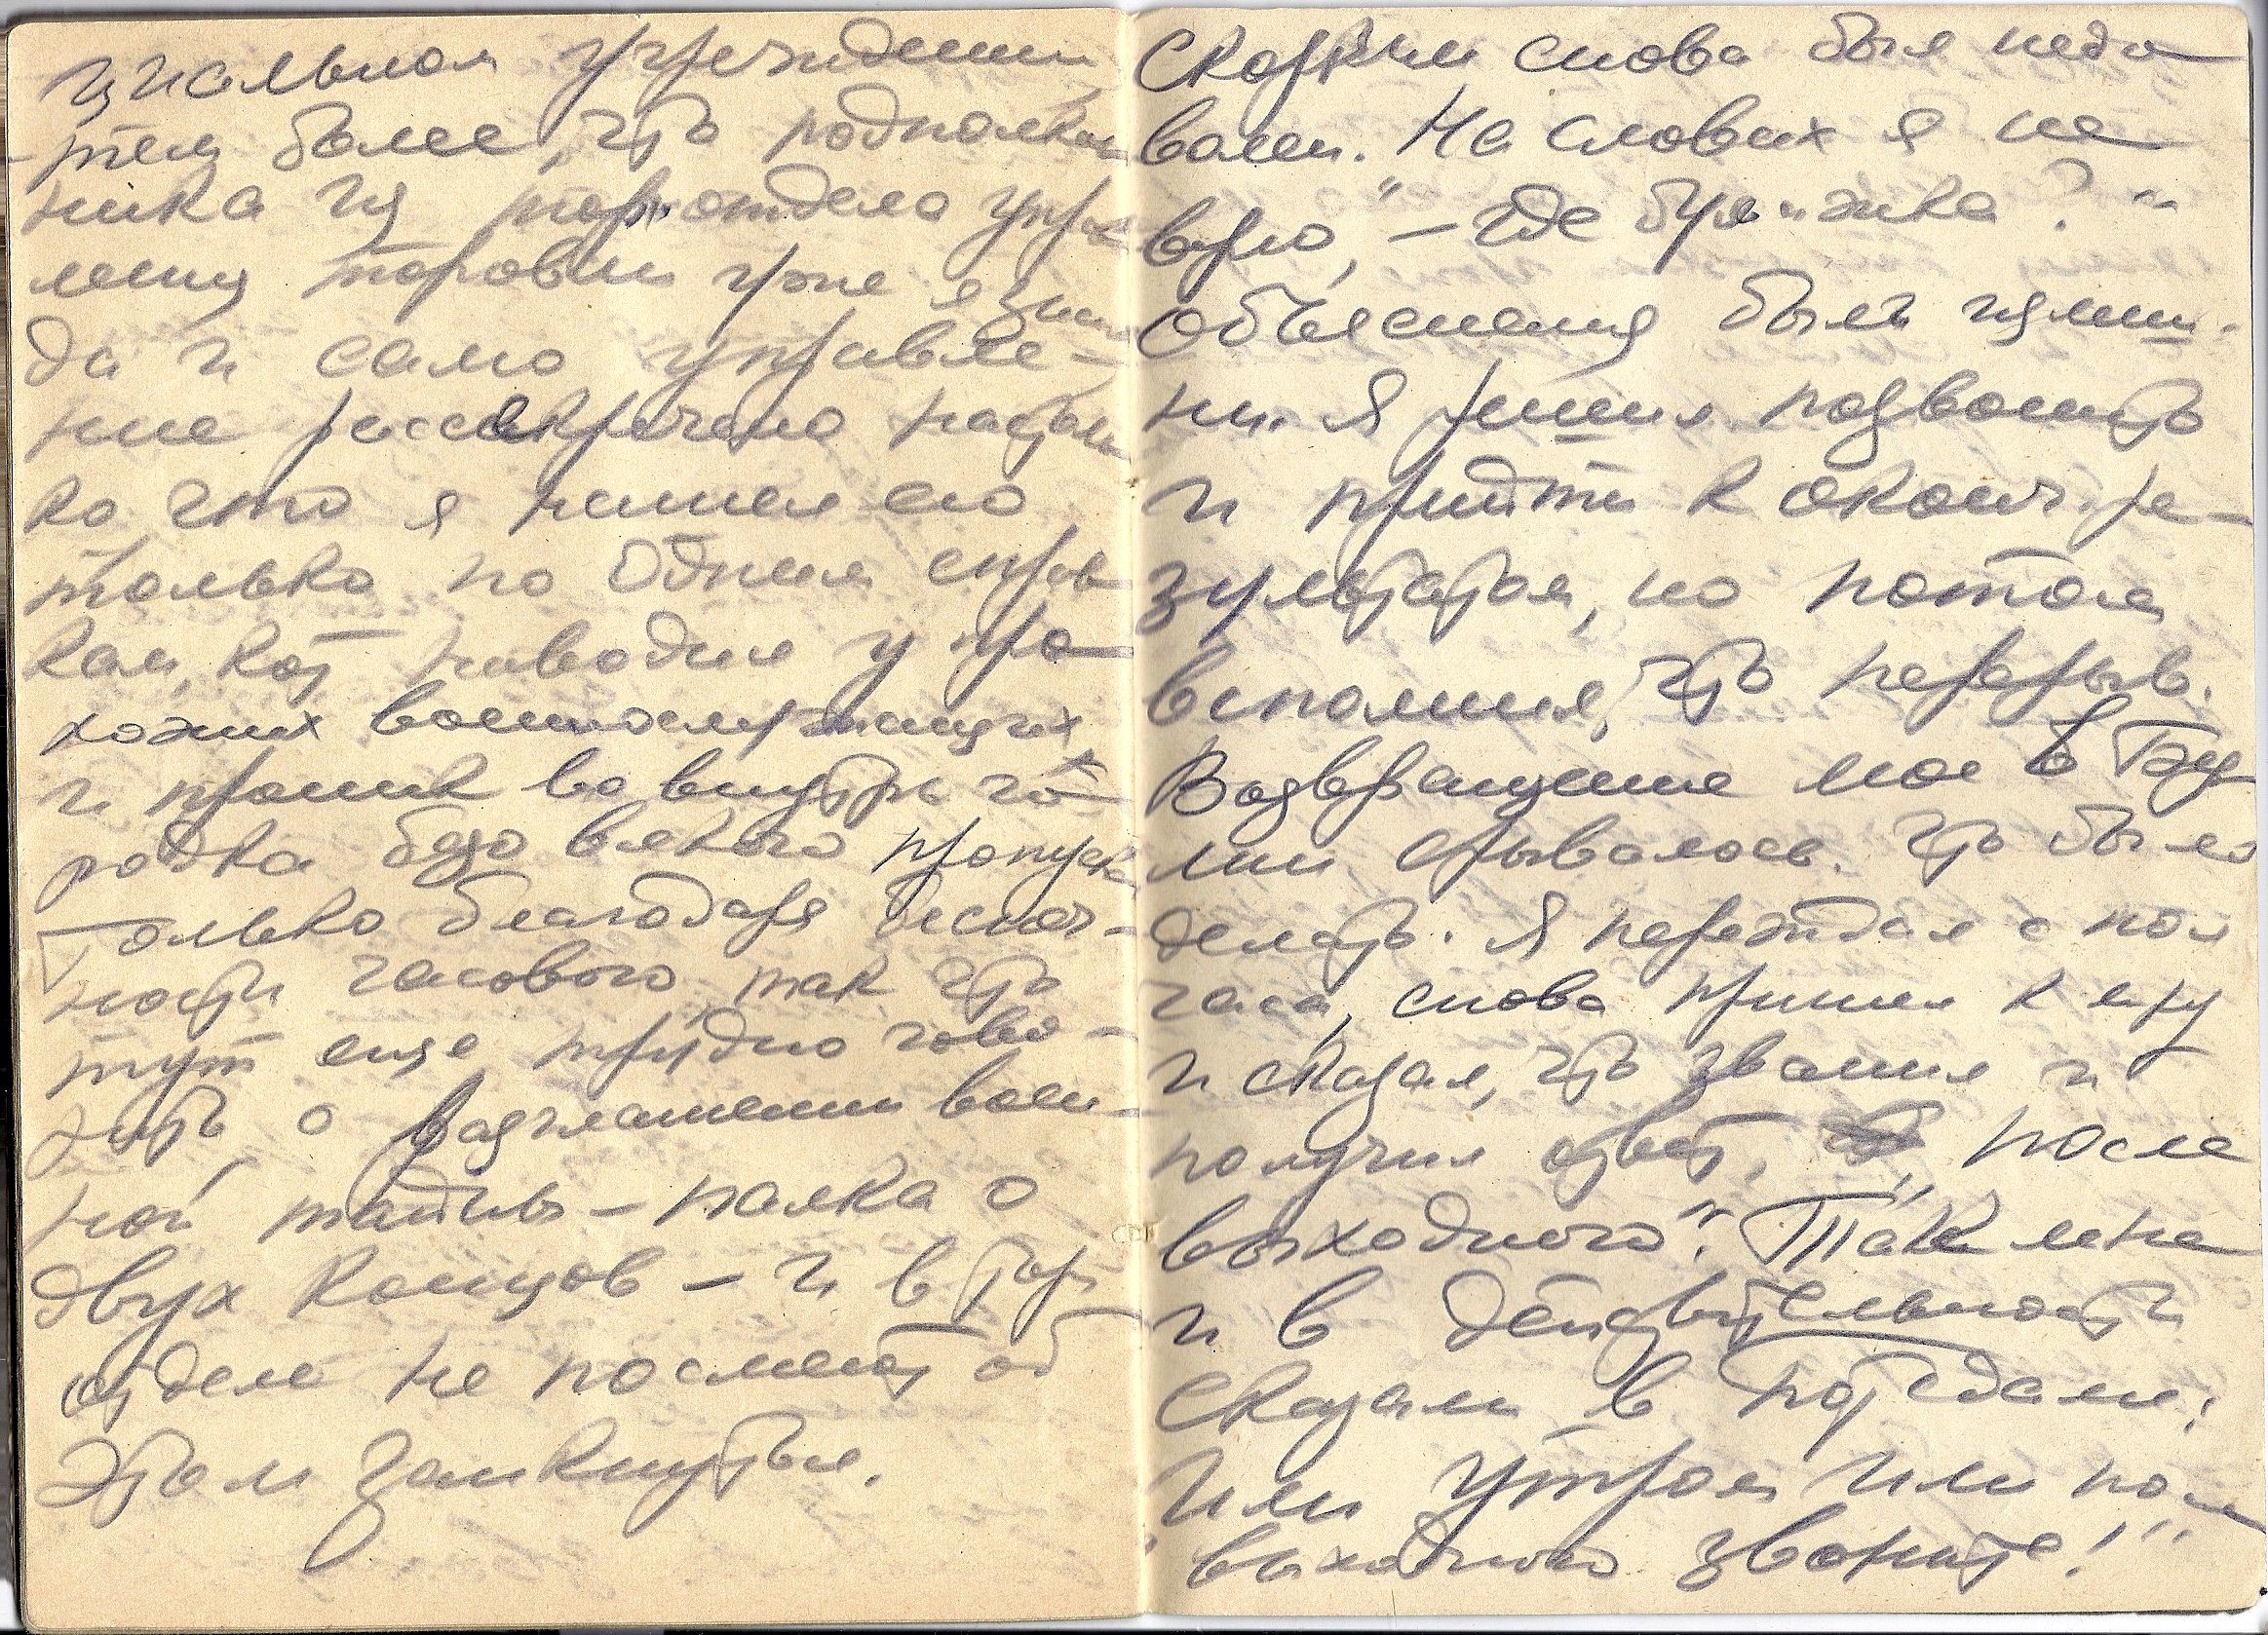 циальном учреждении
тем более, что подполков
ника из торготдела управ
лениу торговли уже я знаю
да и само управле-
ние рассекречено настоль
ко, что я нашел его
только по одним справ
кам, кот наводил у про
хожих военнослужащих,
и проник во внутрь го
родка безо всякого пропуска
только благодаря беспеч-
ности часового, так что
тут еще трудно гово-
рить о разглашении воен-
ной тайны – палка о
двух концов – и в Торг
отделе не посмеют об
этом заикнуться.
снова был недо
волен. На словах я не
верю, – где бумажка? "
Объяснения были излиш-
ни. Я решил позвонить
и прийти к оконч. ре-
зультатам, но потом
вспомнил, что перерыв.
Возвращение мое в
срывалось. Что было
делать. Я переждал с пол
часа, снова пришел к нему
и сказал, что звонил и
получил ответ, "после
выходного". Так мне
и в действительности
сказали в
Или утром или после
выходного звоните!"